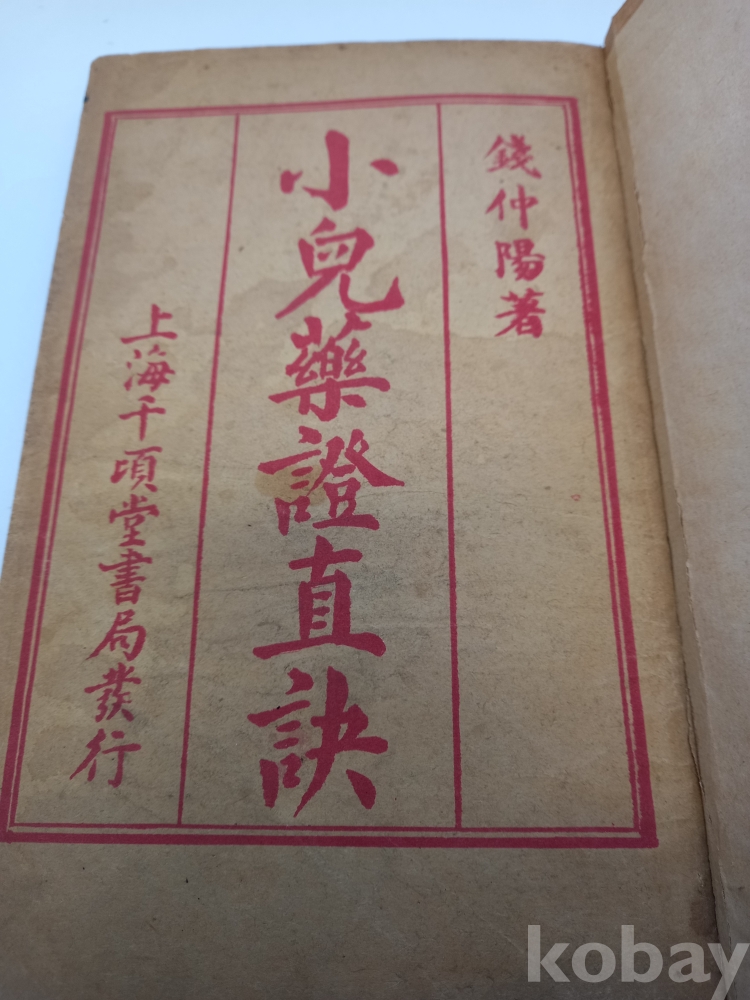 錢仲陽著
小兒藥證直訣
上海千頃堂書局發行
kobay